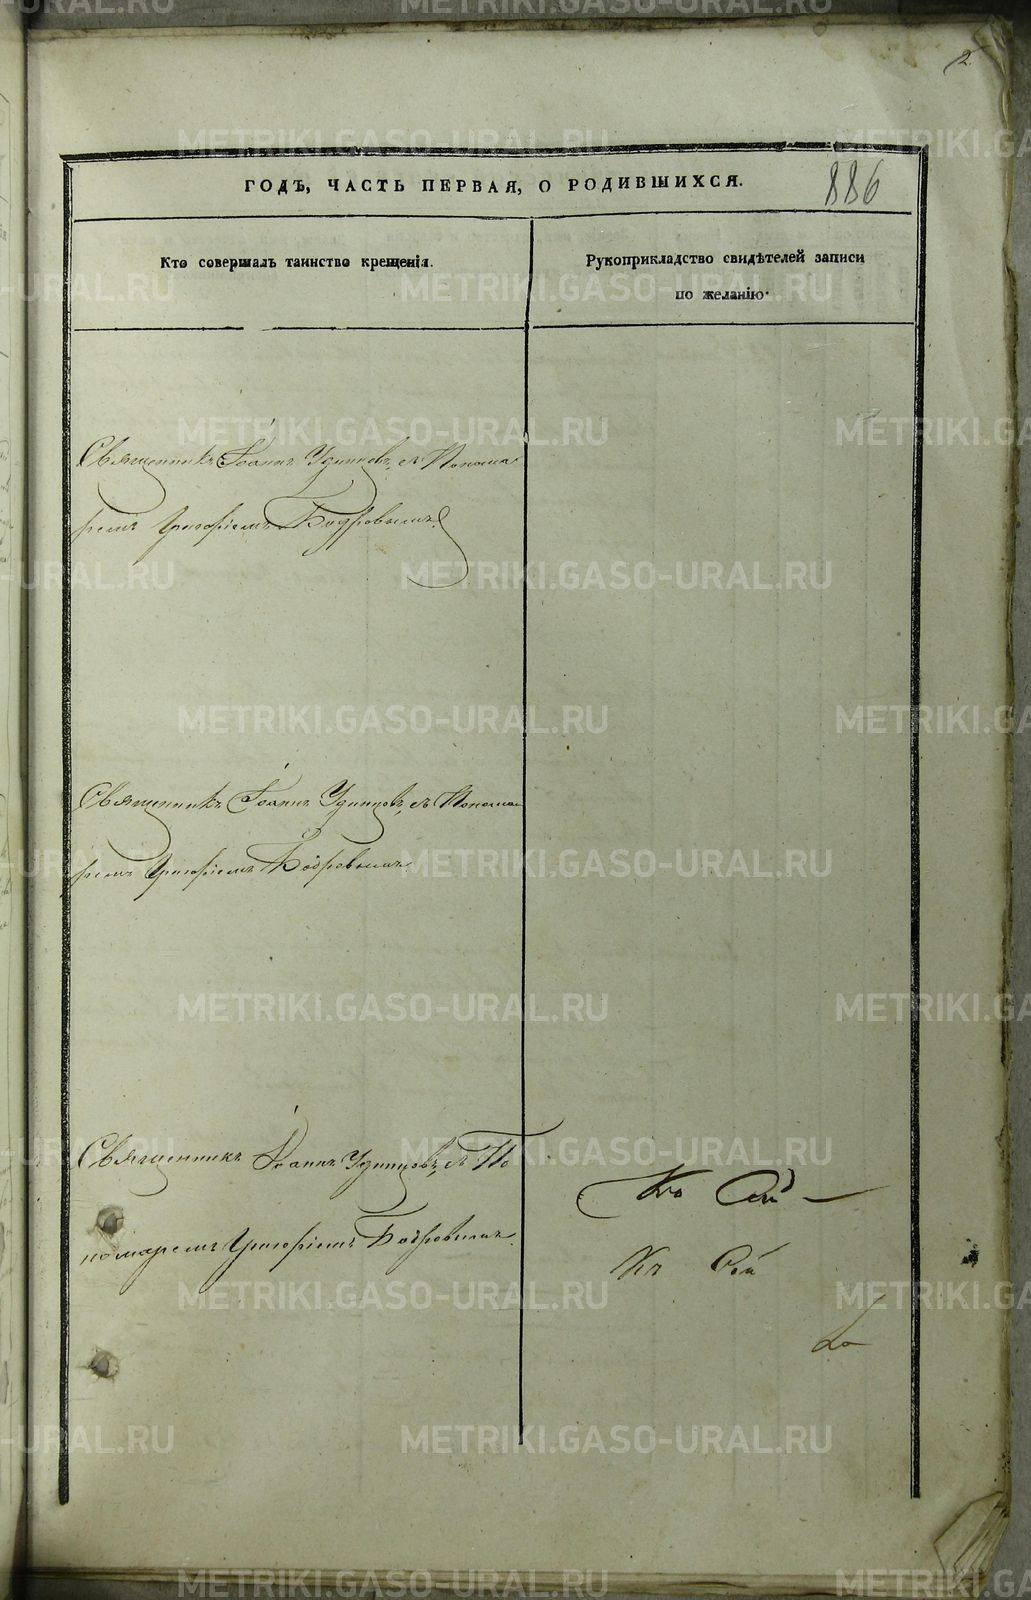 2.
ГОДЪ, ЧАСТЬ ПЕРВАЯ, О РОДИВШИХСЯ.
886
Кто совершалъ таинство крещенія.
Рукоприкладство свидѣтелей записи
по желанію.
Священникъ Іоаннъ Удинцовъ, съ Понома
ремъ Григоріемъ Бодровымъ.
Священникъ Іоаннъ Удинцовъ, съ Понома
ремъ Григоріемъ Бодровымъ.
Священникъ Іоаннъ Удинцовъ, съ По
номаремъ Григоріемъ Бодровымъ.
METRIKI.GASO-URAL.RU